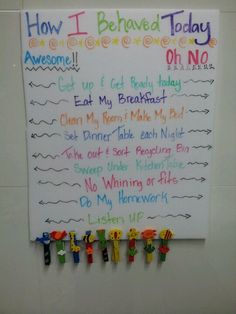 How I Behaved Today
Awesome!! Oh No
Get up & Get Ready today
Eat My Breakfast
Clean My Room & Make My Bed
Set Dinner Table each Night
Take out & Sort Recycling Bin
Sweep Under Kitchen Table
No Whining or fits
Do My Homework
Listen up